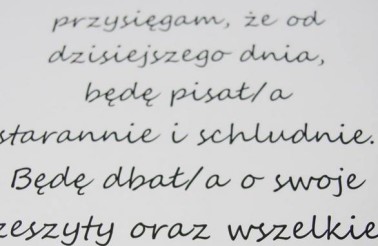 przysięgam, że od
dzisiejszego dnia,
będę pisał/a
starannie i schludnie.
Będę dbał/a o swoje
zeszyty oraz wszelkie